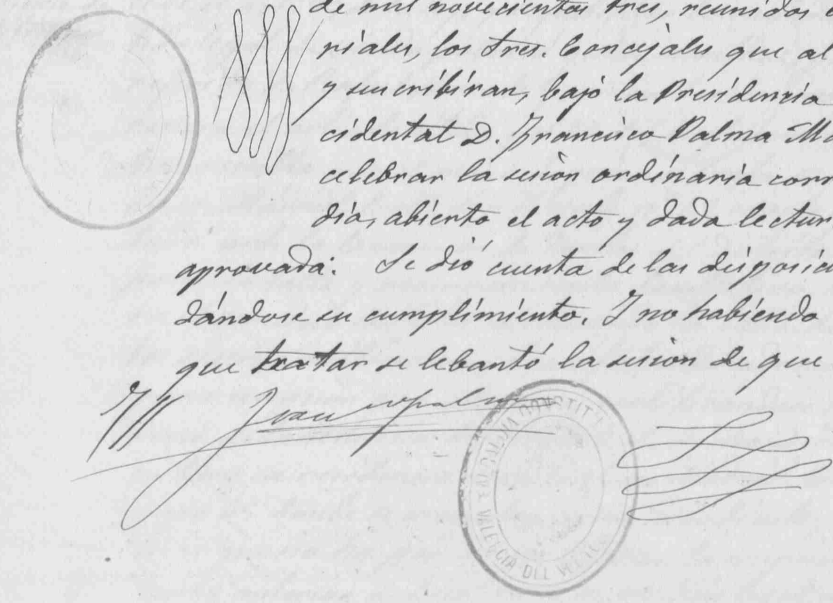 de mil novecientos tres, reunidos
riales, los Sres. Concejales que al
y suscribiran, bajo la Presidencia
cidental D. Francisco Palma
celebrar la sesion ordinaria corr
dia, abierto el acto y dada lectur
aprovada: Se dió cuenta de las disposic
dándose su cumplimiento. Y no habiendo
que tratar se lebantó la sesion de que
Franco Palma